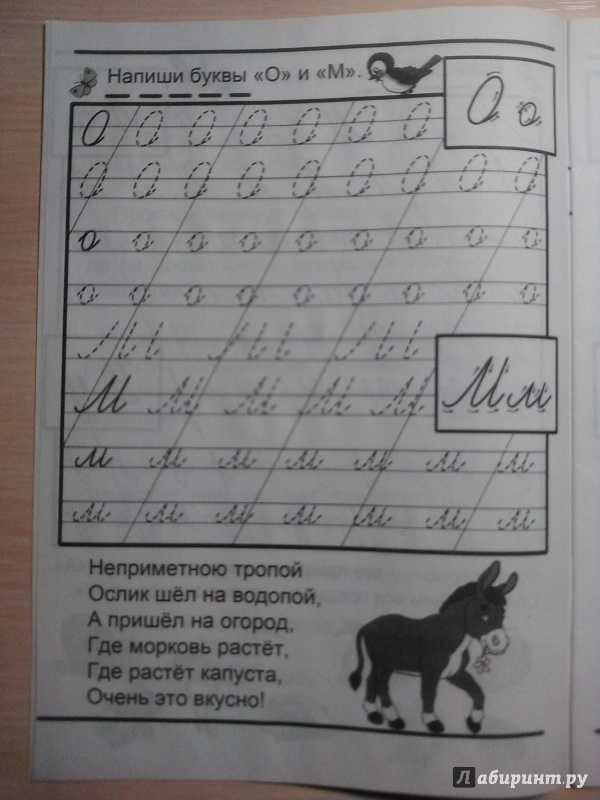 Напиши буквы «О» и «М».
О О О О О О О О о
О О О О О О О О О
о о о о о о о о о
о о о о о о о о о
М М М М М М м
м м м м м м м
м м м м м м м
Неприметною тропой
Ослик шёл на водопой,
А пришёл на огород,
Где морковь растёт,
Где растёт капуста,
Очень это вкусно!
Лабиринт.ру